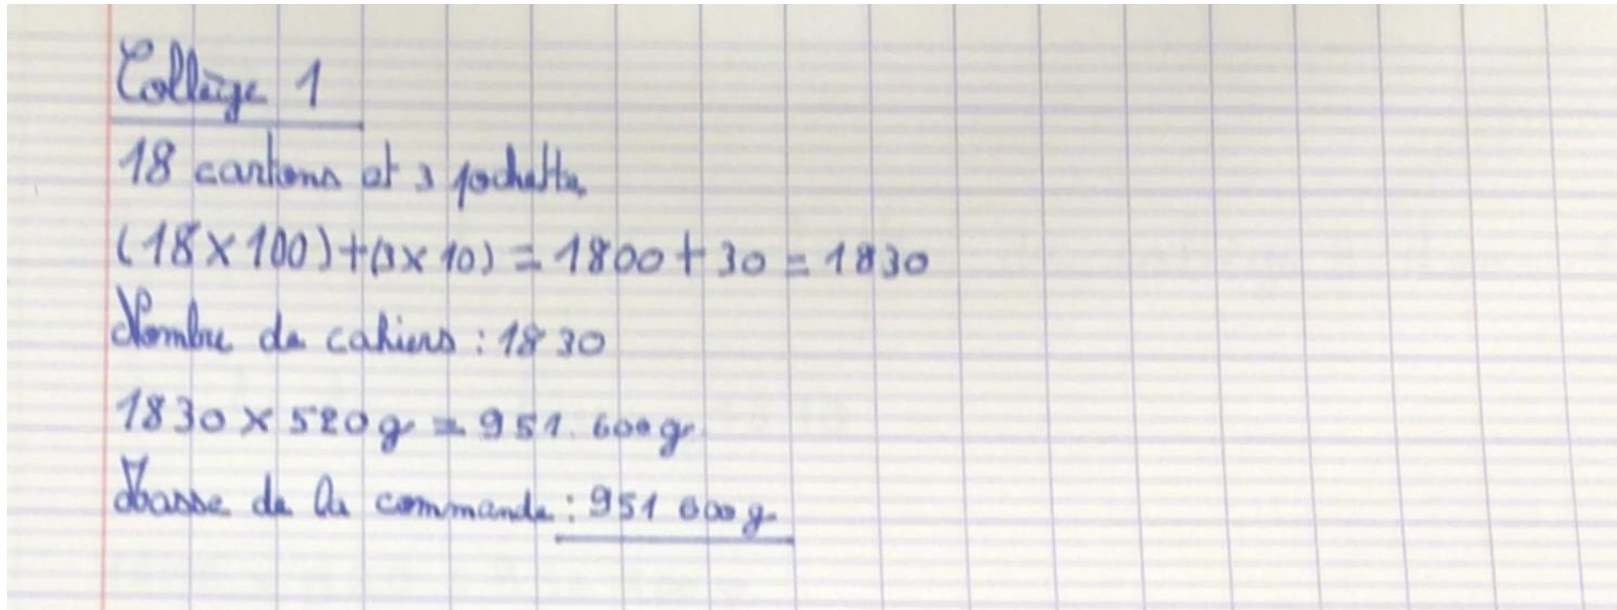 Collège 1
18 cartons et 3 pochettes
(18 × 100) + (3 × 10) = 1800 + 30 = 1830
Nombre de cahiers : 1830
1830 × 520 g = 951.600 g
Masse de la commande : 951 600 g